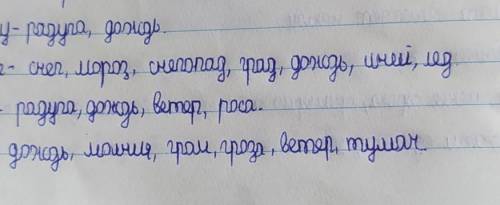 у- радуга, дождь.
г- снег, мороз, снегопад, град, дождь, иней, лед.
- радуга, дождь, ветер, роса.
дождь, молния, гром, гроза, ветер, туман.